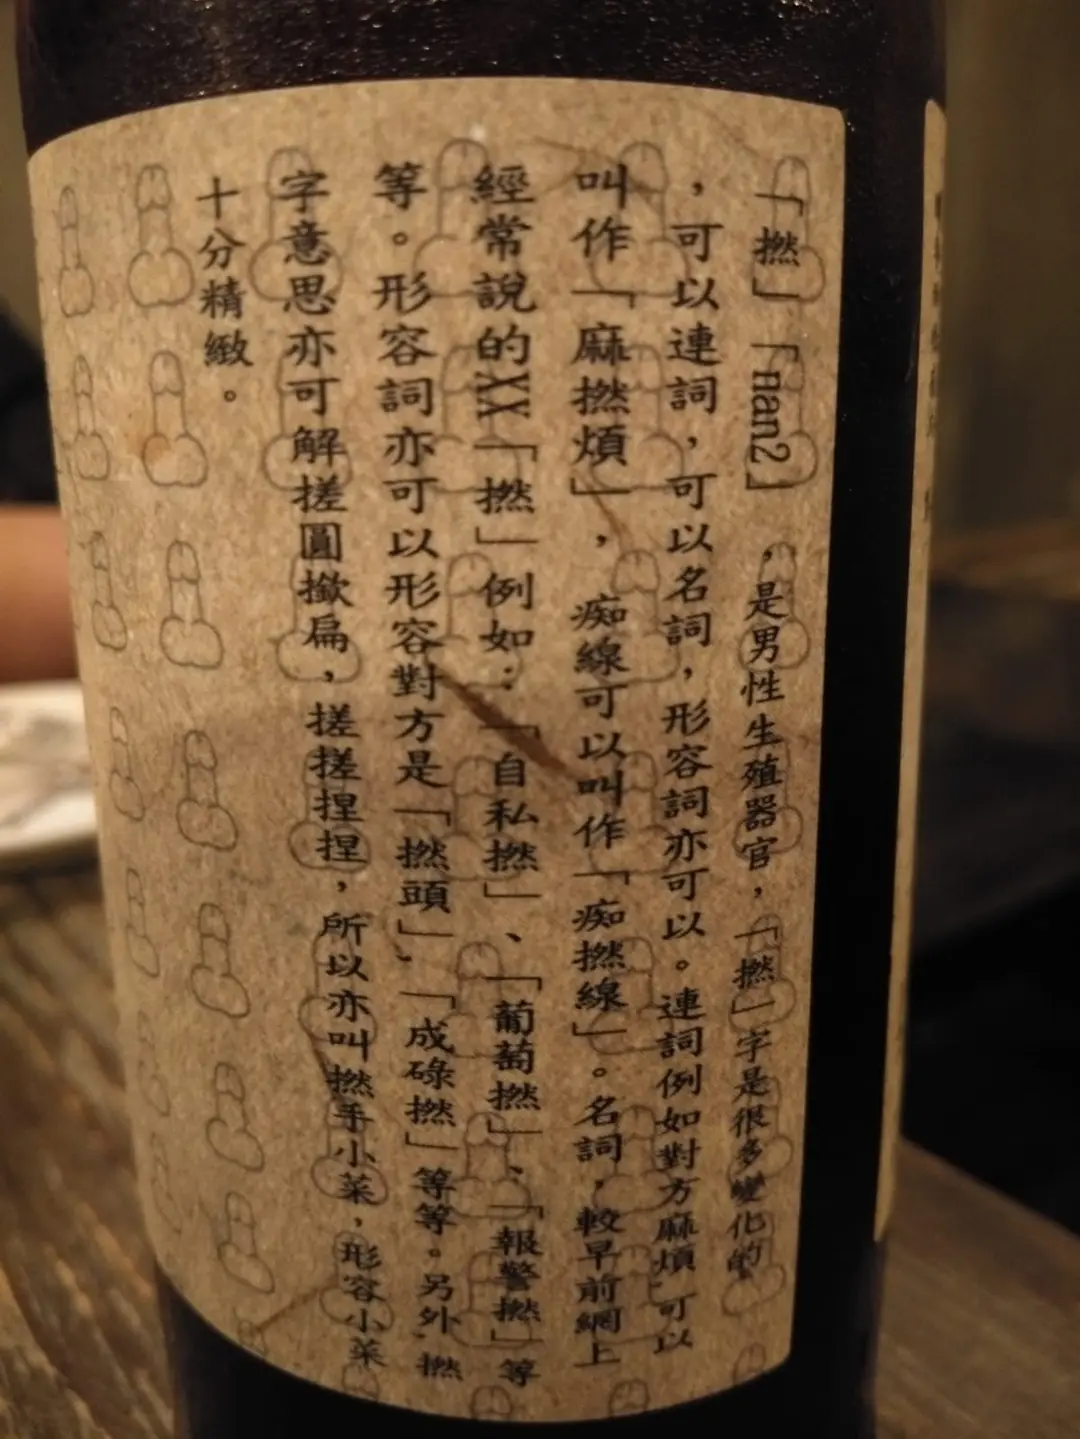 「撚」「nan2」，是男性生殖器官，「撚」字是很多變化的
，可以連詞，可以名詞，形容詞亦可以。連詞例如對方麻煩，可以
叫作「麻撚煩」，痴線可以叫作「痴撚線」。名詞，較早前網上
經常說的XX「撚」例如：「自私撚」、「葡萄撚」、「報警撚」等
等。形容詞亦可以形容對方是「撚頭」、「成碌撚」等等。另外，撚
字意思亦可解搓圓撳扁，搓搓捏捏，所以亦叫撚手小菜，形容小菜
十分精緻。